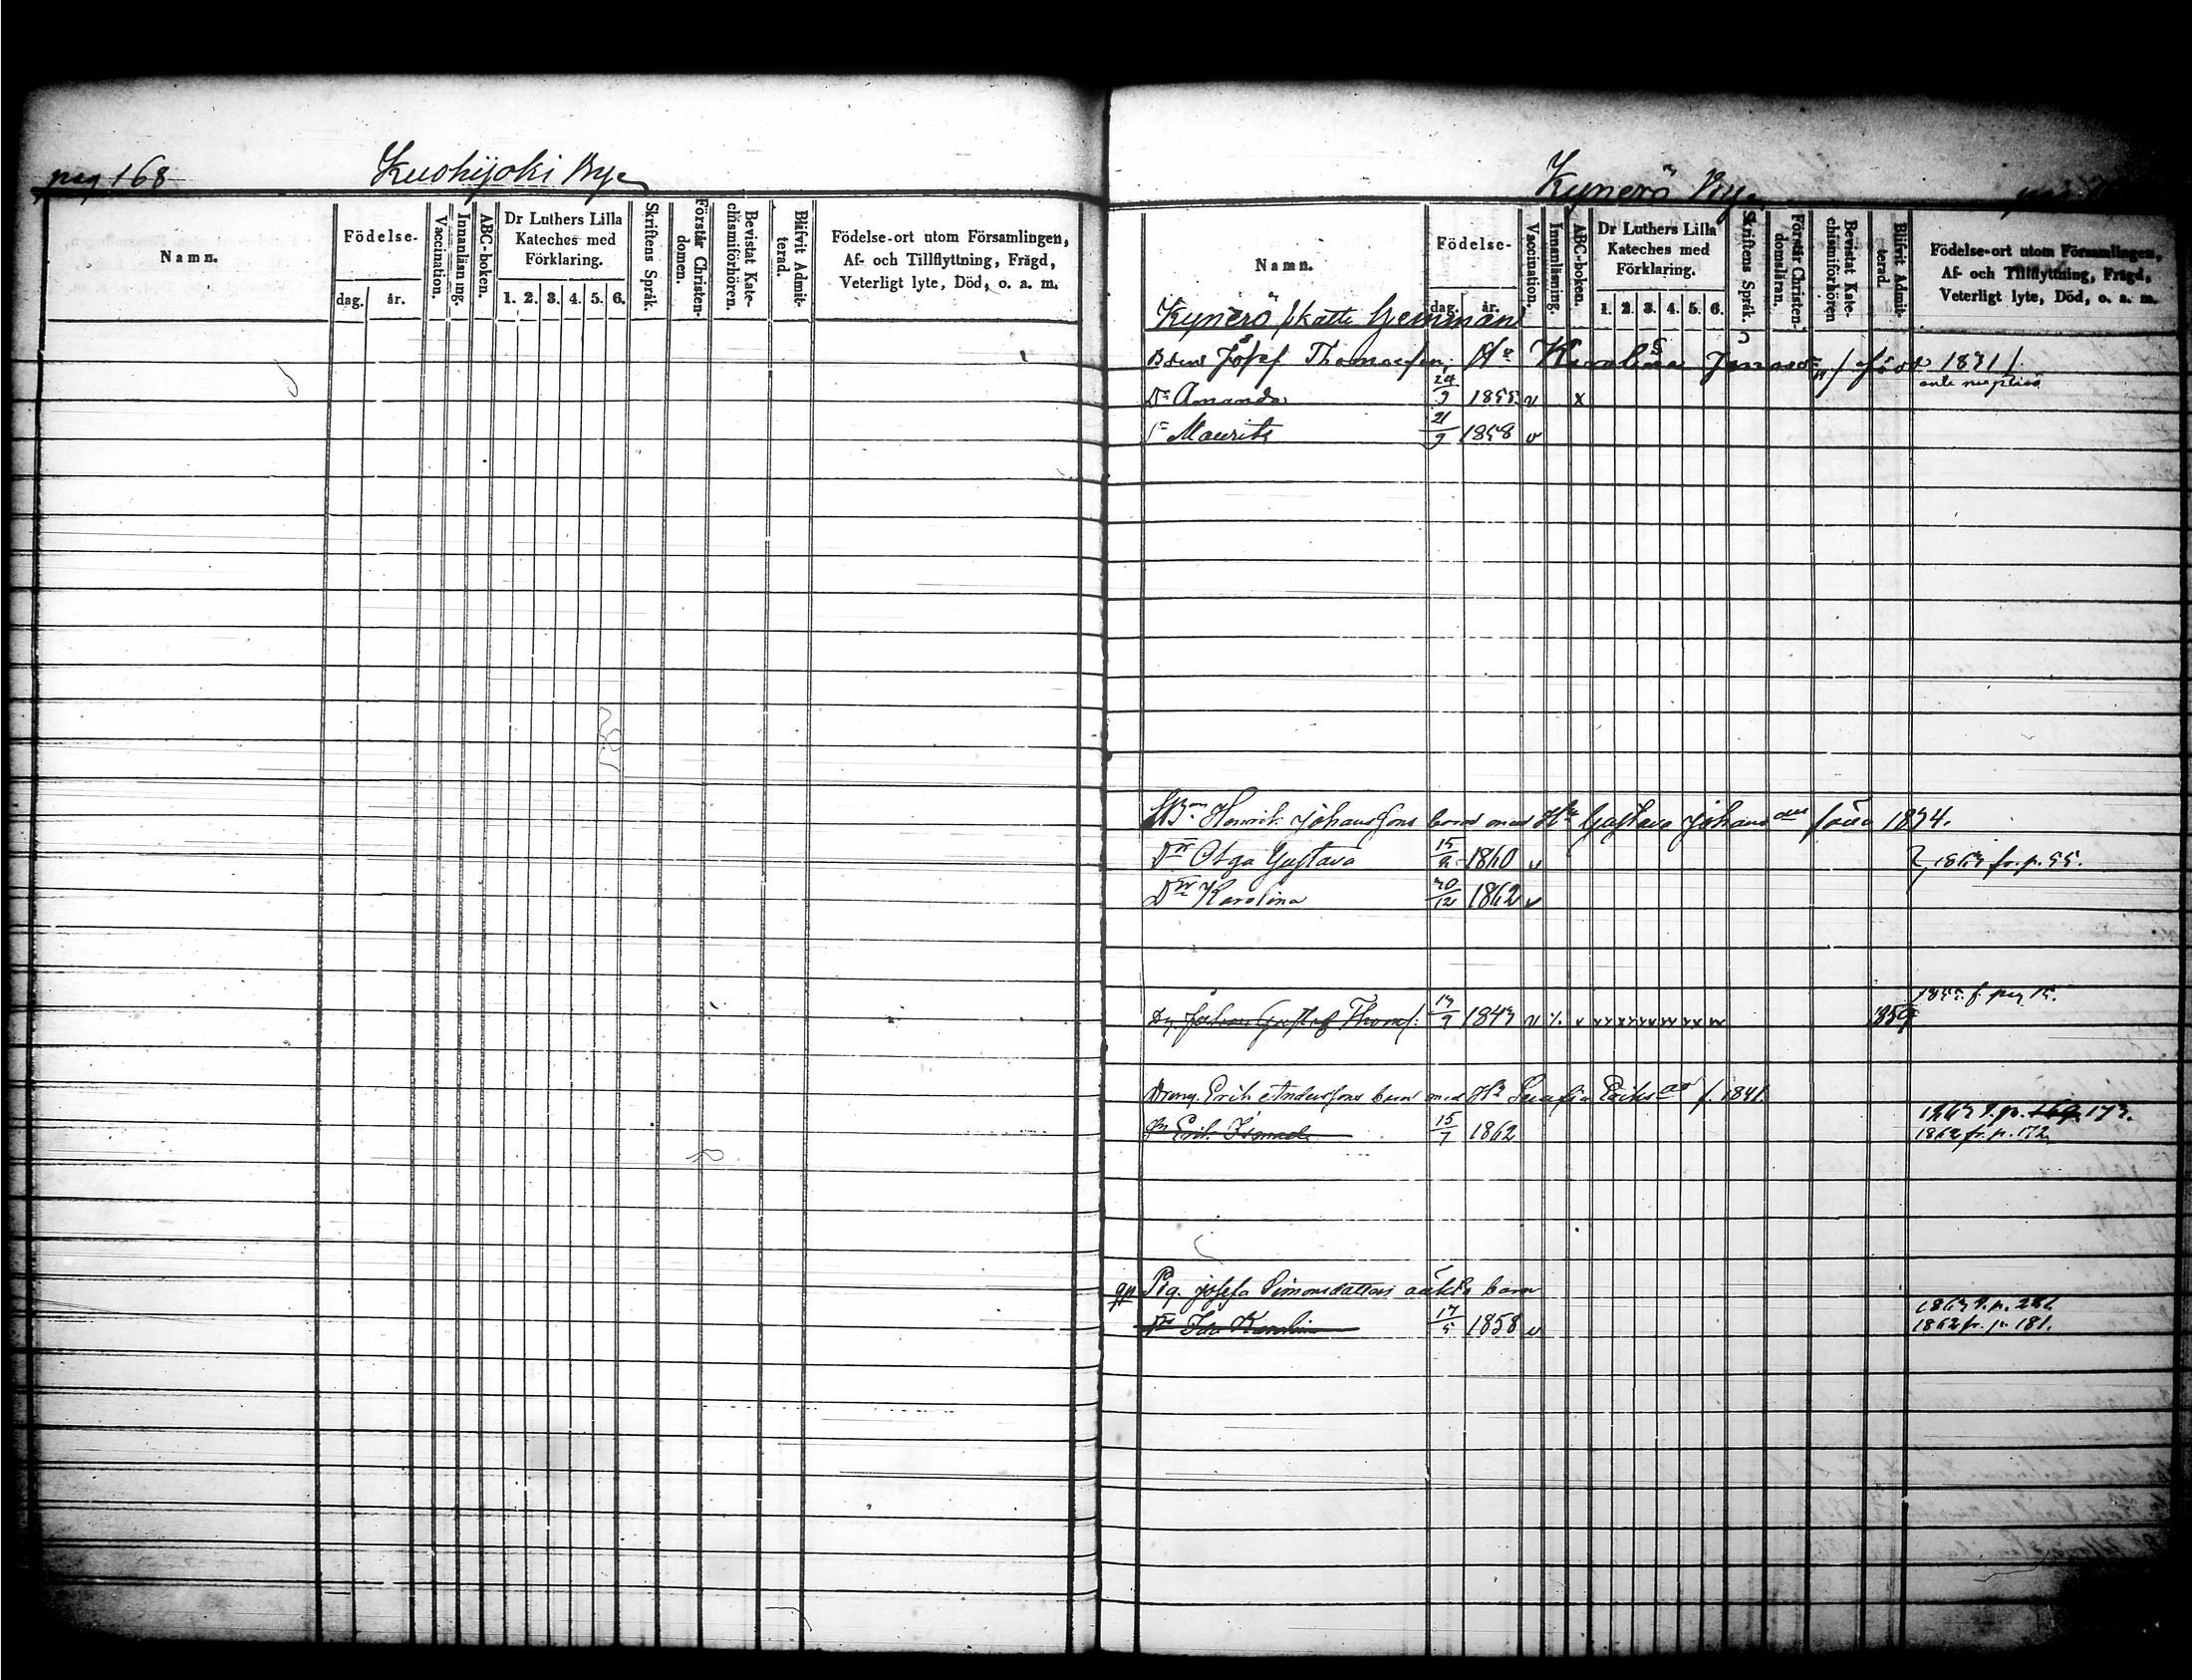 pag 168
Kuohijoki By
Namn.
Födelse-
dag.
år.
Vaccination.
Innanläsning.
ABC-boken.
Dr Luthers Lilla
Kateches med
Förklaring.
1. 2. 3. 4. 5. 6.
Skriftens Språk.
Förstår Christen-
domen.
Bevistat Kate-
chismiförhören.
Blifvit Admit-
terad.
Födelse-ort utom Församlingen,
Af- och Tillflyttning, Frägd,
Veterligt lyte, Död, o. a. m.
Kynerö By
Namn.
Födelse-
dag.
år.
Vaccination.
Innanläsning.
ABC-boken.
Dr Luthers Lilla
Kateches med
Förklaring.
1. 2. 3. 4. 5. 6.
Skriftens Språk.
Förstår Christen-
domsläran.
Bevistat Kate-
chismiförhören
Blifvit Admit-
terad.
Födelse-ort utom Församlingen,
Af- och Tillflyttning, Frägd,
Veterligt lyte, Död, o. a. m.
Kynerö Skatte
Josef Thomasson Karolina 1831
Dr Amanda 24/9 1855 v x
Sn Maurits 21/9 1858 v
Henrik Johanssons barn med Hu Gustava Johansdr 1834.
Dr Olga Gustava 15/8 1860 v fr. p. 55.
Dr Karolina 20/12 1862 v
Dg Johan Gustaf Thoms. 17/9 1843 v 1859
Dreng Erik Anderssons barn med Hu Serafia Eriksdr f. 1841.
Sn Erik 15/7 1862 1863 t. p. 169. 173.
1862 fr. p. 172
Pig. Josefa Simonsdotters oäkta barn
Dr Ida Karolina 17/5 1858 v
1862 fr. p. 181.